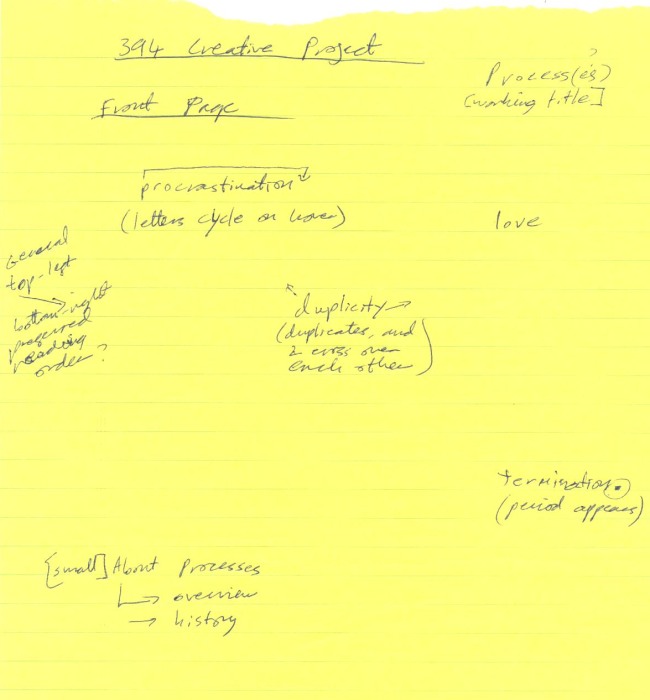 394 Creative Project
?
Process(es)
[working title]
Front Page
procrastination
(letters cycle on hover)
love
General
top-left
bottom-right
preferred
reading
order?
duplicity
(duplicates, and
2 cross over
each other)
termination.
(period appears)
[small] About Processes
overview
history